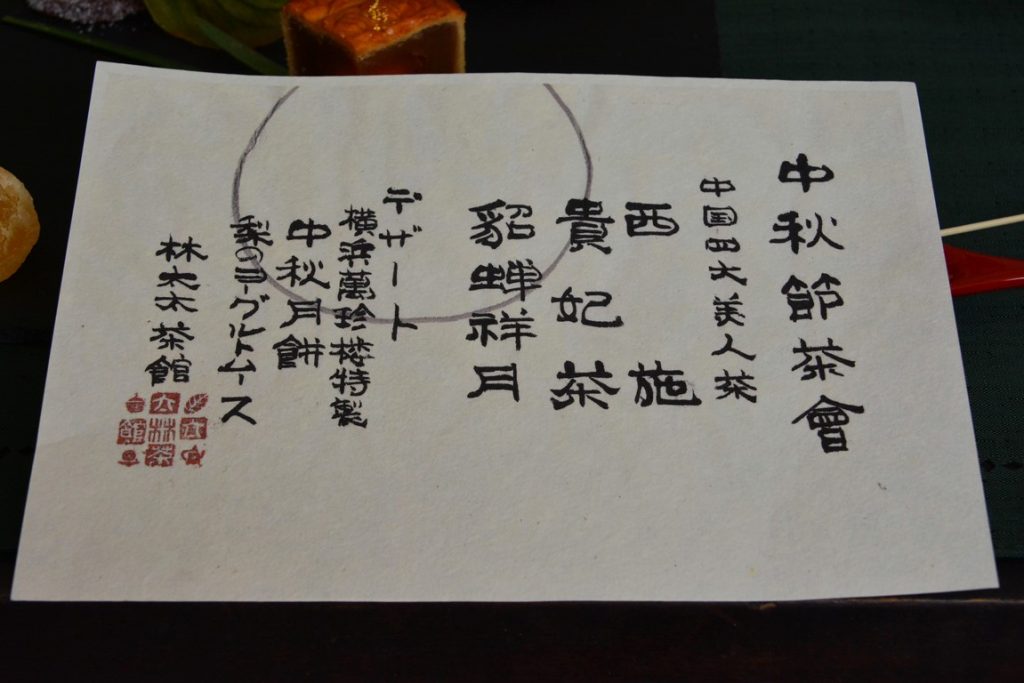 中秋節茶會
中国四大美人茶
西施
貴妃茶
貂蝉祥月
デザート
横浜萬珍楼特製
中秋月餅
梨のヨーグルトムース
林太太茶館